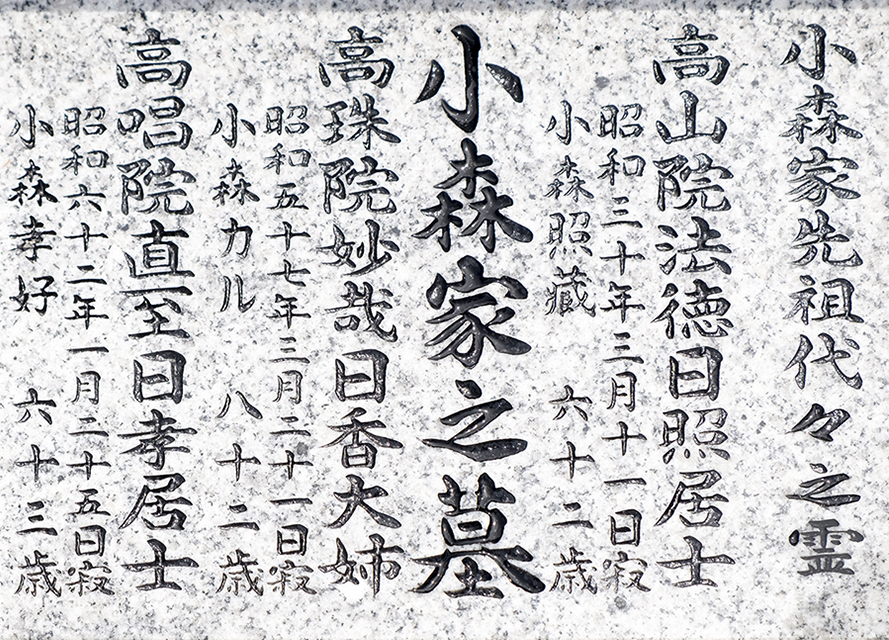 小森家先祖代々之霊
高山院法徳日照居士
昭和三十年三月十一日寂
小森照藏 六十二歳
小森家之墓
高珠院妙哉日香大姉
昭和五十七年三月二十一日寂
小森カル 八十二歳
高唱院直至日孝居士
昭和六十二年一月二十五日寂
小森孝好 六十三歳